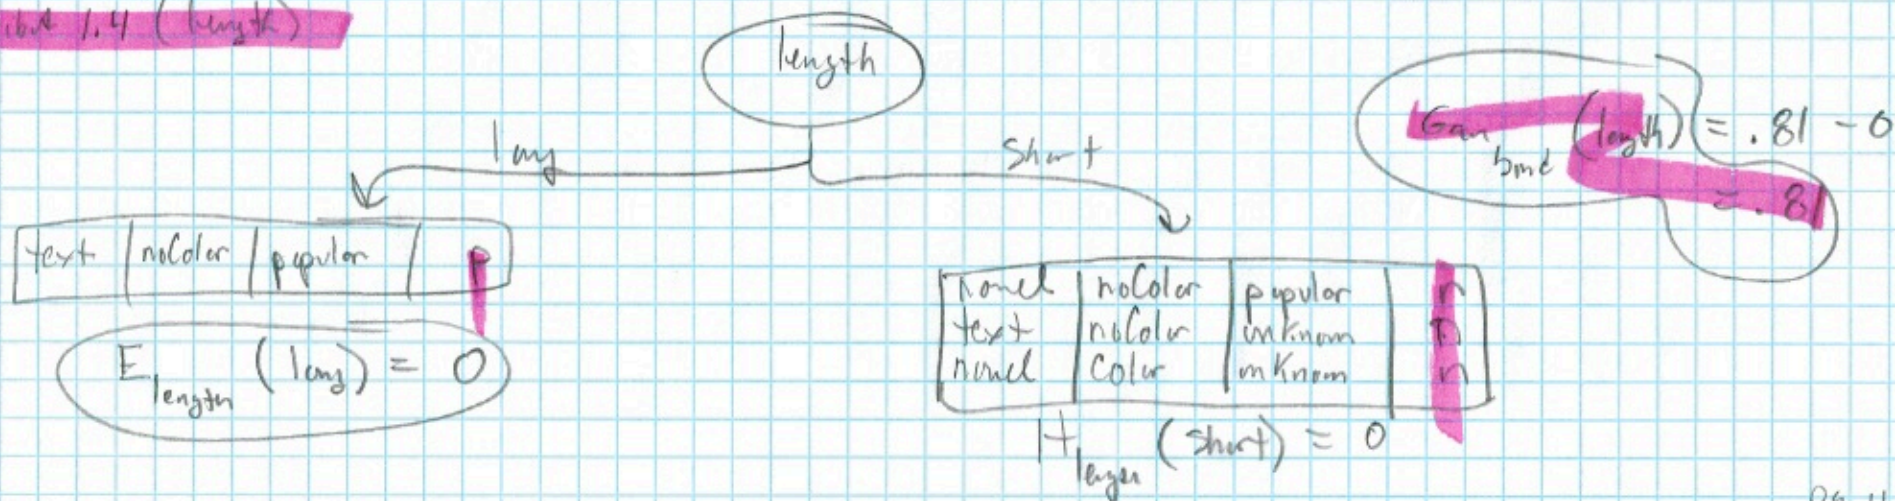 1.4 (length)
length
long
short
Gain bond (length) = .81 - 0
= .81
text noColor popular p
E length (long) = 0
novel noColor popular n
text noColor unknown n
novel color unknown n
H length (short) = 0